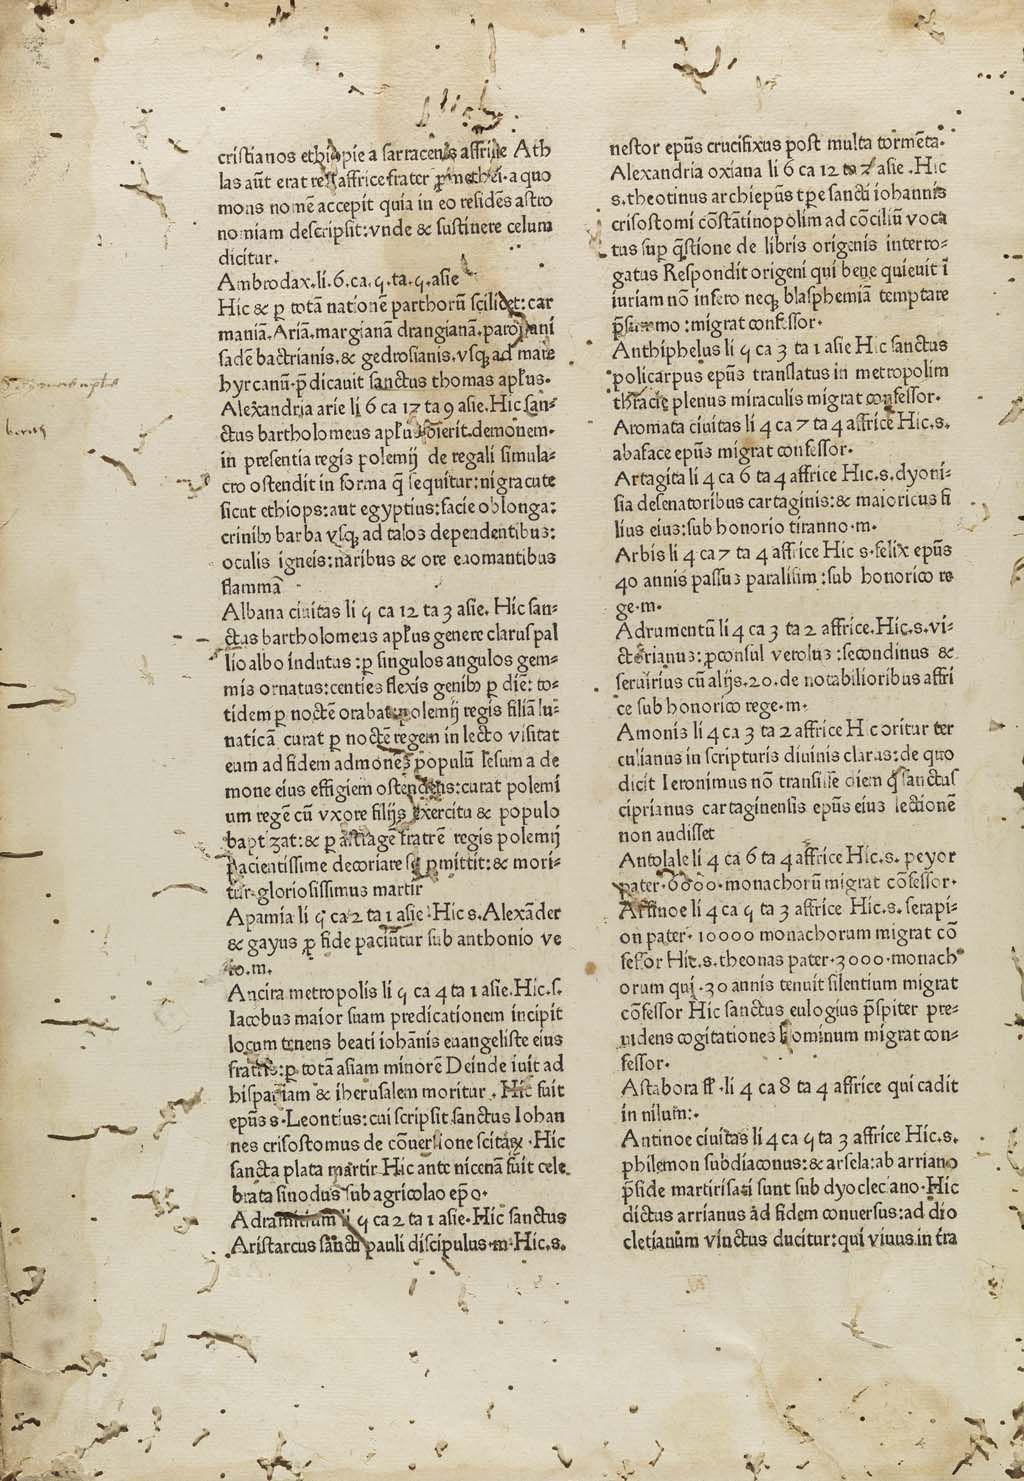 cristianos ethiopie a sarracenis affrine Ath
las aūt erat affrice frater a quo
mons nomē accepit quia in eo residēs astro
nomiam descripsit: vnde & sustinere celum
dicitur.
Ambrodax. li. 6. ca. ꝯ. ta. ꝯ. asie
Hic & ꝑ totā nationē parthorū scilicet: car
maniā. Ariā. margianā drangianā.
sadē bactrianis. & gedrosianis. vsqꝫ ad mare
hyrcanū. p̄dicauit sanctus thomas apl̄us.
Alexandria arie li 6 ca 17 ta 9 asie. Hic san⸗
ctus bartholomeus demonem.
in presentia regis polemij de regali simula⸗
cro ostendit in forma q̄ sequitur: nigra cute
sicut ethiops: aut egyptius: facie oblonga:
crinibꝫ barba vsqꝫ ad talos dependentibus:
oculis igneis: naribus & ore euomantibus
flammā
Albana ciuitas li ꝯ ca 12 ta 3 asie. Hic san⸗
ctus bartholomeus apl̄us genere clarus pal
lio albo indutus: ꝑ singulos angulos gem⸗
mis ornatus: centies flexis genibꝫ ꝑ diē: to⸗
tidem ꝑ noctē orabat polemij regis filiā lu⸗
naticā curat ꝑ noctē regem in lecto visitat
eum ad fidem admonēs populū Iesum a de
mone eius effigiem ostendens: curat polemi
um regē cū vxore filijs exercitu & populo
baptizat: & ꝑ astiagē fratrē regis polemij
pacientissime decoriare se ꝑmittit: & mori⸗
tur gloriosissimus martir
Apamia li ꝯ ca 2 ta 1 asie. Hic s. Alexāder
& gayus ꝓ fide paciūtur sub anthonio ve
ro. m.
Ancira metropolis li ꝯ ca 4 ta 1 asie. Hic. s.
Iacobus maior suam predicationem incipit
locum tenens beati iohānis euangeliste eius
fratris: ꝑ totā asiam minorē Deinde iuit ad
hispaniam & iherusalem moritur. Hic fuit
epūs s. Leontius: cui scripsit sanctus Iohan
nes crisostomus de cōuersione Hic
sancta plata martir Hic ante nicenā fuit cele
brata sinodus sub agricolao ep̄o.
Adramitium li ꝯ ca 2 ta 1 asie. Hic sanctus
Aristarcus sancti pauli discipulus. m. Hic. s.
nestor epūs crucifixus post multa tormēta.
Alexandria oxiana li 6 ca 12 ta 7 asie. Hic
s. theotinus archiepūs tp̄e sancti iohannis
crisostomi cōstātinopolim ad cōciliū voca
tus suꝑ q̄stione de libris origenis interro⸗
gatus Respondit origeni qui bene quieuit ī
iuriam nō infero neqꝫ blasphemiā temptare
p̄sumo: migrat confessor.
Anthiphelus li ꝯ ca 3 ta 1 asie Hic sanctus
policarpus epūs translatus in metropolim
thracie plenus miraculis migrat confessor.
Aromata ciuitas li 4 ca 7 ta 4 affrice Hic. s.
abaface epūs migrat confessor.
Artagita li 4 ca 6 ta 4 affrice Hic. s. dyoni⸗
sia de senatoribus cartaginis: & maioricus fi
lius eius: sub honorio tiranno. m.
Arbis li 4 ca 7 ta 4 affrice Hic s. felix epūs
40 annis passus paralisim: sub honorico re
ge. m.
Adrumentū li 4 ca 3 ta 2 affrice. Hic. s. vi⸗
ctorianus: ꝓconsul verolus: secondinus &
seruirius cū alijs. 20. de notabilioribus affri
ce sub honorico rege. m.
Amonis li 4 ca 3 ta 2 affrice Hic oritur ter
culianus in scripturis diuinis clarus: de quo
dicit Ieronimus nō transisse diem q̄ sanctus
ciprianus cartaginensis epūs eius lectionē
non audisset
Antolale li 4 ca 6 ta 4 affrice Hic. s. peyor
pater. 6000. monachorū migrat cōfessor.
Arsinoe li 4 ca ꝯ ta 3 affrice Hic. s. serapi⸗
on pater. 10000 monachorum migrat cō
fessor Hic. s. theonas pater. 3000. monach
orum qui. 30 annis tenuit silentium migrat
cōfessor Hic sanctus eulogius p̄spiter pre⸗
uidens cogitationes hominum migrat con⸗
fessor.
Astabora fl̄. li 4 ca 8 ta 4 affrice qui cadit
in nilum:.
Antinoe ciuitas li 4 ca ꝯ ta 3 affrice Hic. s.
philemon subdiaconus: & arsela: ab arriano
p̄side martirisati sunt sub dyocleciano. Hic
dictus arrianus ad fidem conuersus: ad dio
cletianum vinctus ducitur: qui viuus in t̄ra